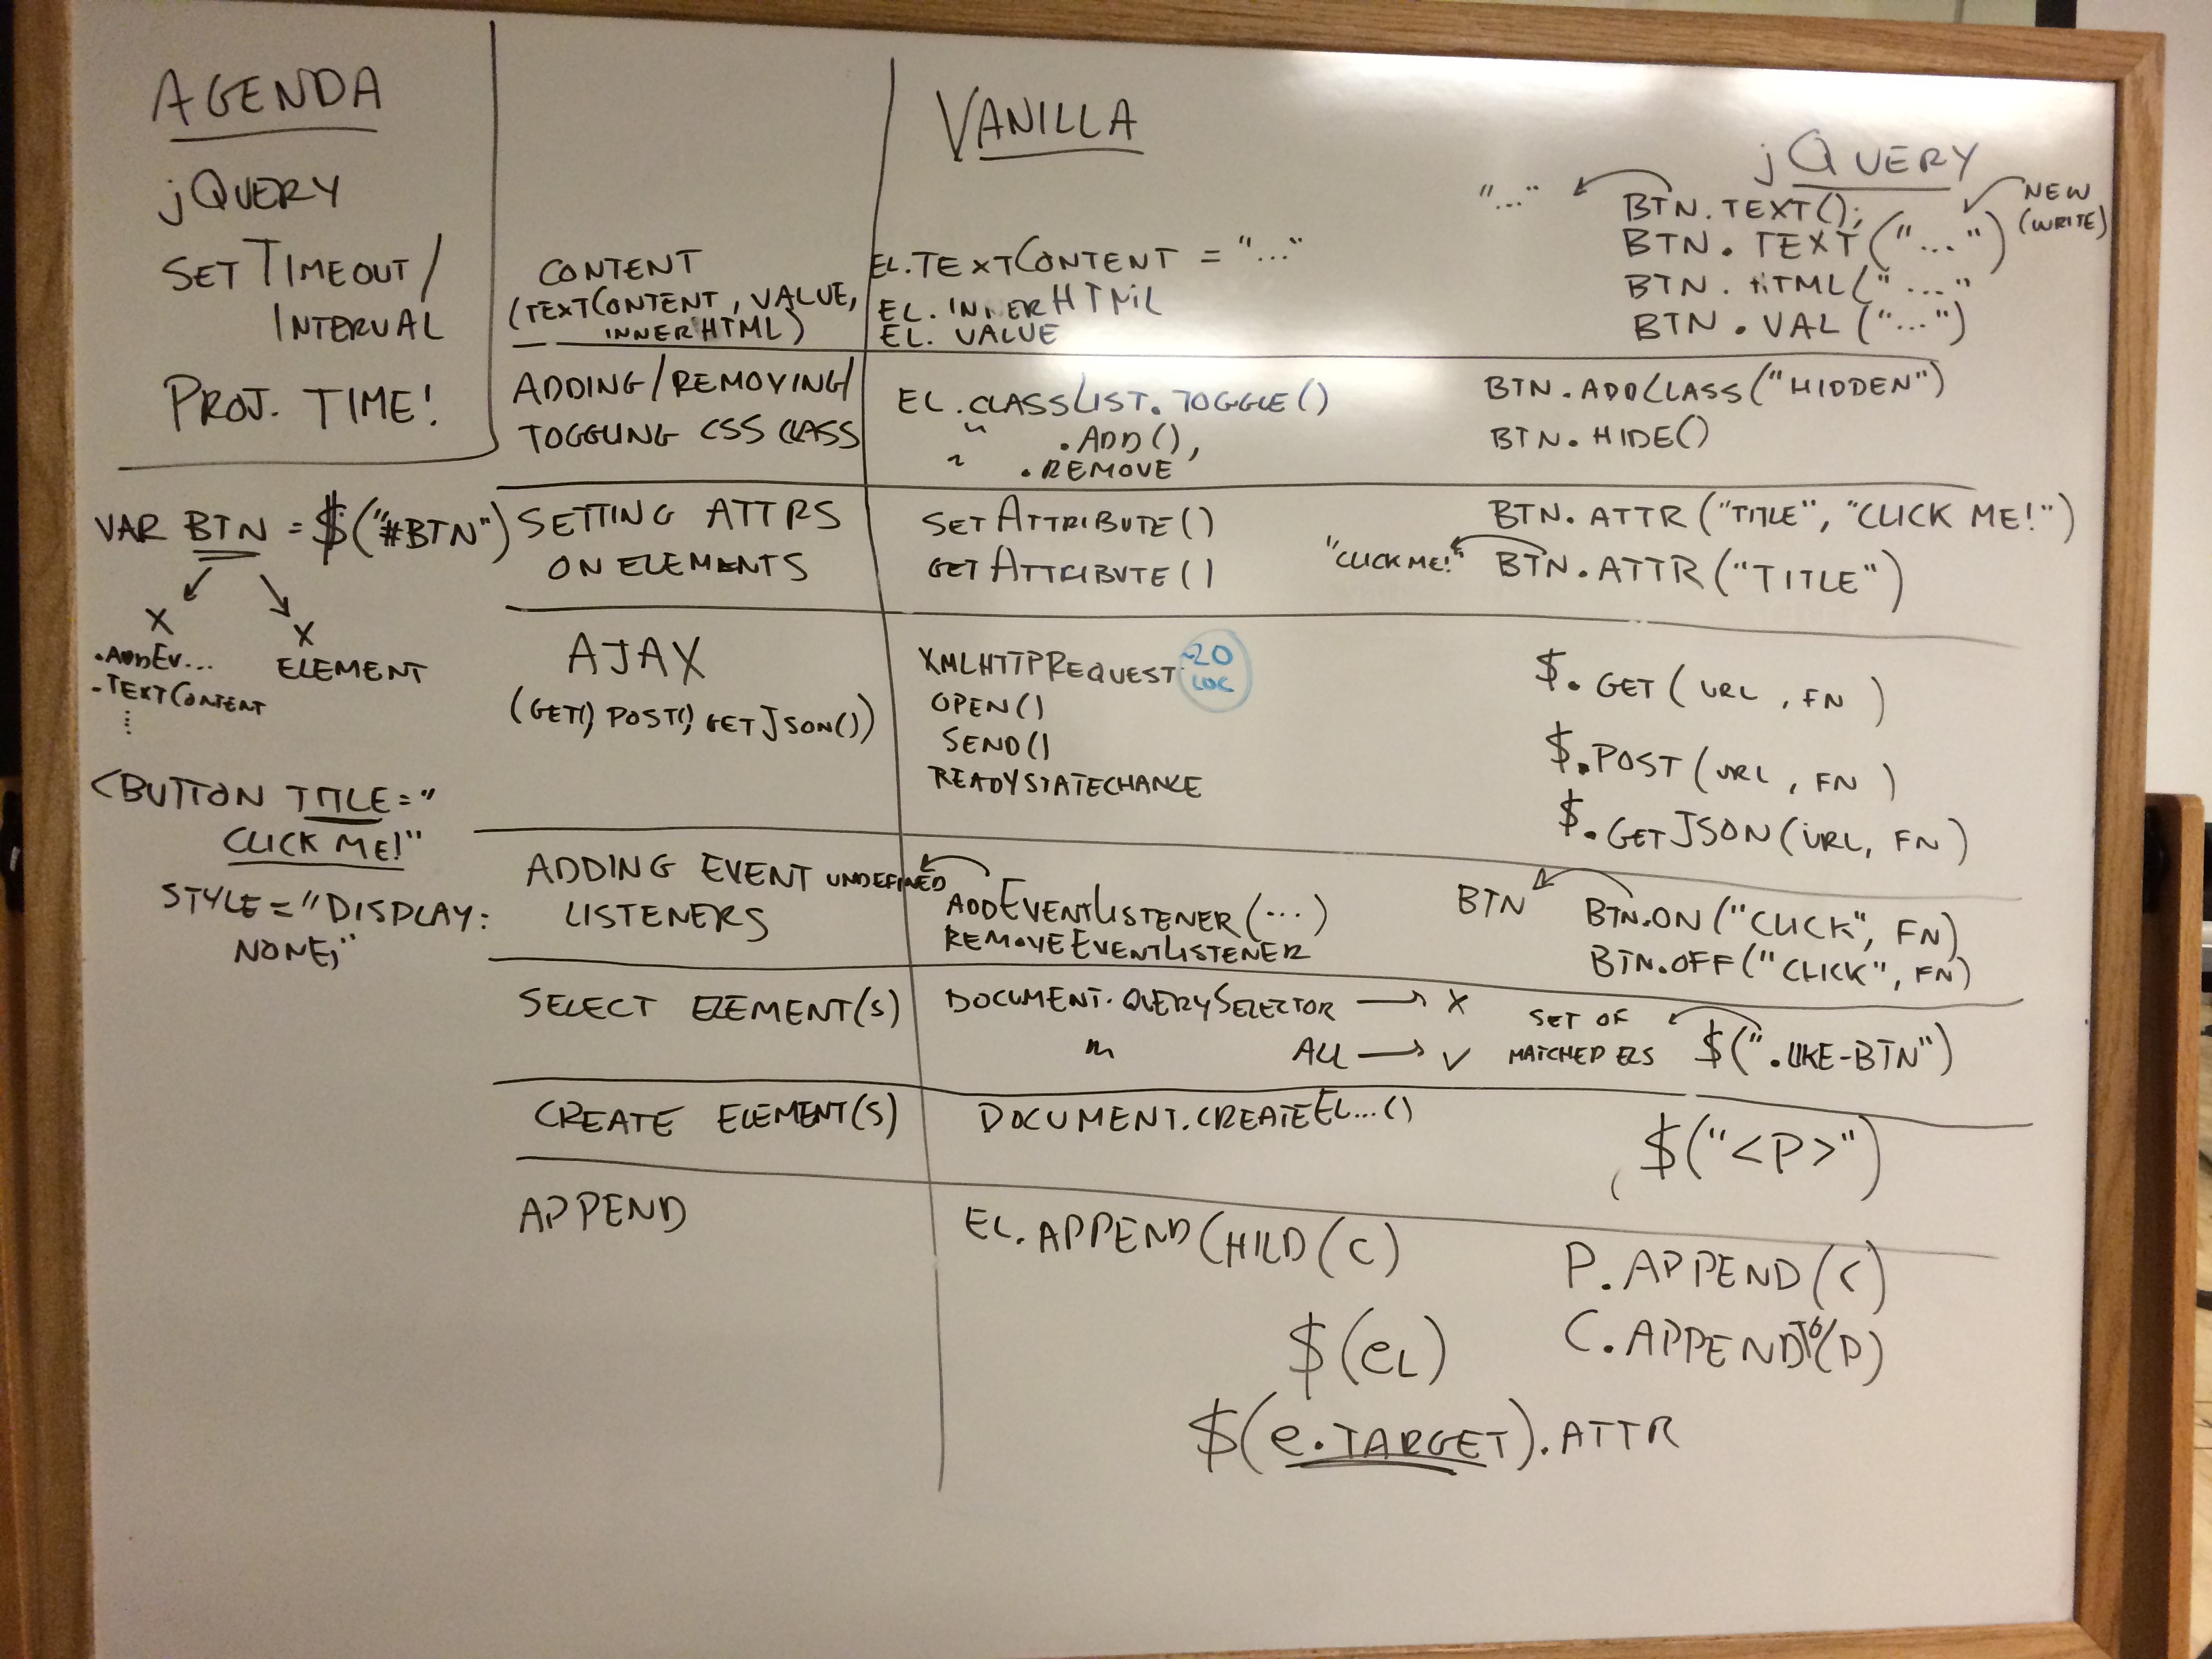 AGENDA
jQUERY
SET TIMEOUT /
INTERVAL
PROJ. TIME!
VAR BTN = $("#BTN")
X
X
.ADDEV...
.TEXTCONTENT
ELEMENT
<BUTTON TITLE="
CLICK ME!"
STYLE="DISPLAY:
NONE;"
VANILLA
jQUERY
CONTENT
(TEXTCONTENT, VALUE,
INNERHTML)
EL.TEXTCONTENT = "..."
EL. INNERHTML
EL. VALUE
"..."
BTN.TEXT();
NEW
(WRITE)
BTN. TEXT("...")
BTN. HTML("...."
BTN. VAL ("...")
ADDING/REMOVING/
TOGGLING CSS CLASS
EL.CLASSLIST.TOGGLE()
" .ADD(),
" .REMOVE
BTN.ADDCLASS("HIDDEN")
BTN.HIDE()
SETTING ATTRS
ON ELEMENTS
SETATTRIBUTE()
GETATTRIBUTE()
BTN.ATTR("TITLE", "CLICK ME!")
"CLICK ME!"
BTN.ATTR("TITLE")
AJAX
(GET(), POST(), GETJSON())
XMLHTTPREQUEST
~20
LOC
OPEN()
SEND()
READYSTATECHANGE
$.GET(URL, FN)
$.POST(URL, FN)
$.GETJSON(URL, FN)
ADDING EVENT
LISTENERS
UNDEFINED
ADDEVENTLISTENER(...)
REMOVEEVENTLISTENER
BTN
BTN.ON("CLICK", FN)
BTN.OFF("CLICK", FN)
SELECT ELEMENT(S)
DOCUMENT.QUERYSELECTOR → X
" ALL → ✓
SET OF
MATCHED ELS
$(".LIKE-BTN")
CREATE ELEMENT(S)
DOCUMENT.CREATEEL...()
$("<P>")
APPEND
EL.APPENDCHILD(C)
P.APPEND(C)
C.APPENDTO(P)
$(eL)
$(e.TARGET).ATTR